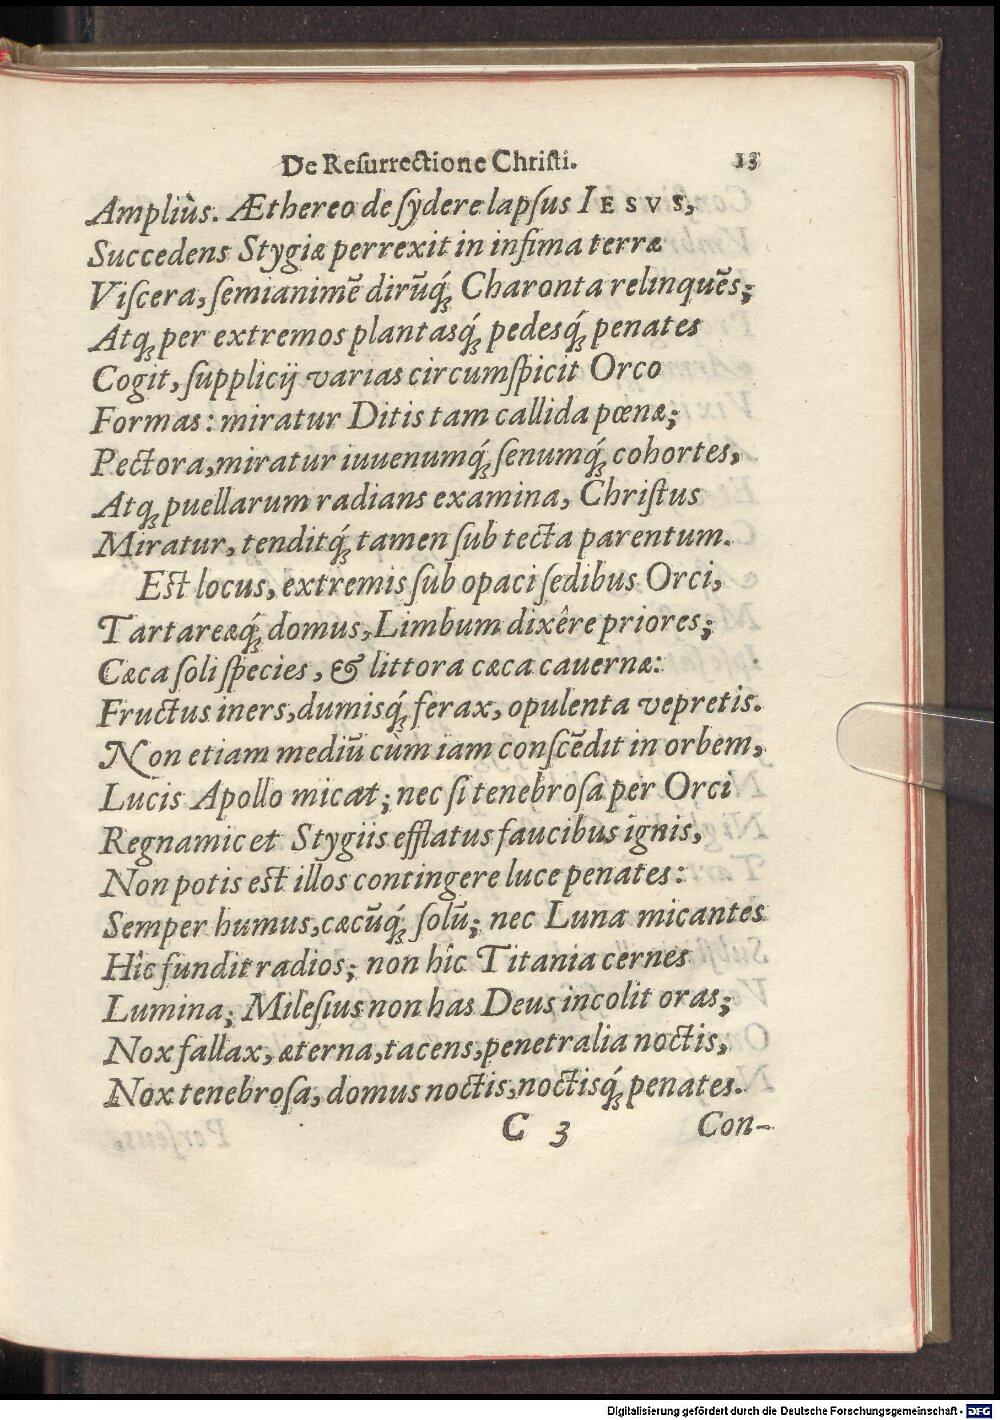 De Reſurrectione Chriſti. 13
Ampliùs. Æthereo de ſydere lapſus IESVS,
Succedens Stygiæ perrexit in infima terræ
Viſcera, ſemianimē dirūq́ꝫ Charonta relinquēs;
Atqꝫ per extremos plantasq́ꝫ pedesq́ꝫ penates
Cogit, ſupplicij varias circumſpicit Orco
Formas: miratur Ditis tam callida pœnæ;
Pectora, miratur iuuenumq́ꝫ ſenumq́ꝫ cohortes,
Atqꝫ puellarum radians examina, Chriſtus
Miratur, tenditq́ꝫ tamen ſub tecta parentum.
Eſt locus, extremis ſub opaci ſedibus Orci,
Tartareæq́ꝫ domus, Limbum dixêre priores;
Cæca ſoli ſpecies, & littora cæca cauernæ:
Fructus iners, dumisq́ꝫ ferax, opulenta vepretis.
Non etiam mediū cùm iam conſcēdit in orbem,
Lucis Apollo micat; nec ſi tenebroſa per Orci
Regna micet Stygiis efflatus faucibus ignis,
Non potis eſt illos contingere luce penates:
Semper humus, cæcūq́ꝫ ſolū; nec Luna micantes
Hîc fundit radios; non hîc Titania cernes
Lumina; Mileſius non has Deus incolit oras;
Nox fallax, æterna, tacens, penetralia noctis,
Nox tenebroſa, domus noctis, noctisq́ꝫ penates.
C 3 Con-
Digitalisierung gefördert durch die Deutsche Forschungsgemeinschaft - DFG